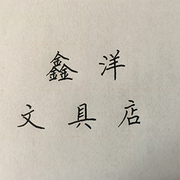 鑫洋
文具店